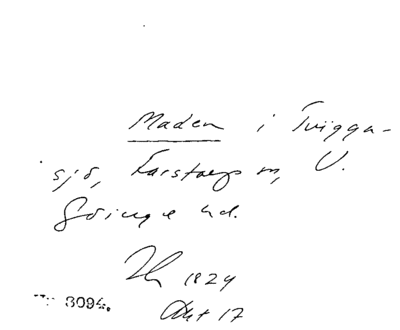 Maden i Tvigga-
sjö, Farstorps sn, V.
Göinge hd.
1824
Akt 17